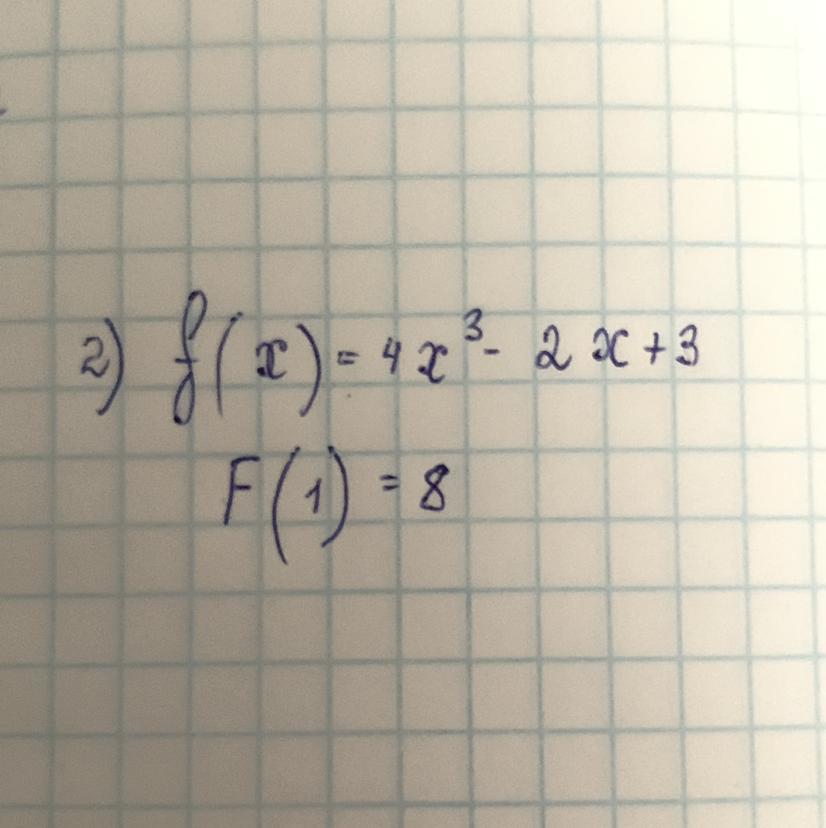 2) f(x) = 4x³ - 2x + 3
F(1) = 8